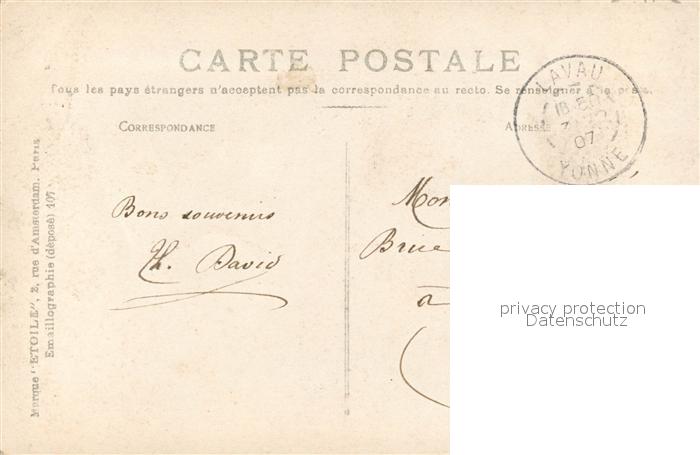 CARTE POSTALE
Tous les pays étrangers n'acceptent pas la correspondance au recto. Se renseigner à la poste.
CORRESPONDANCE
ADRESSE
LAVAU
18
07
YONNE
Bons souvenirs
Th. David
Brice
à
privacy protection
Datenschutz
Marque "ETOILE", 2, rue d'Amsterdam. Paris
Emaillographie (déposé) 107